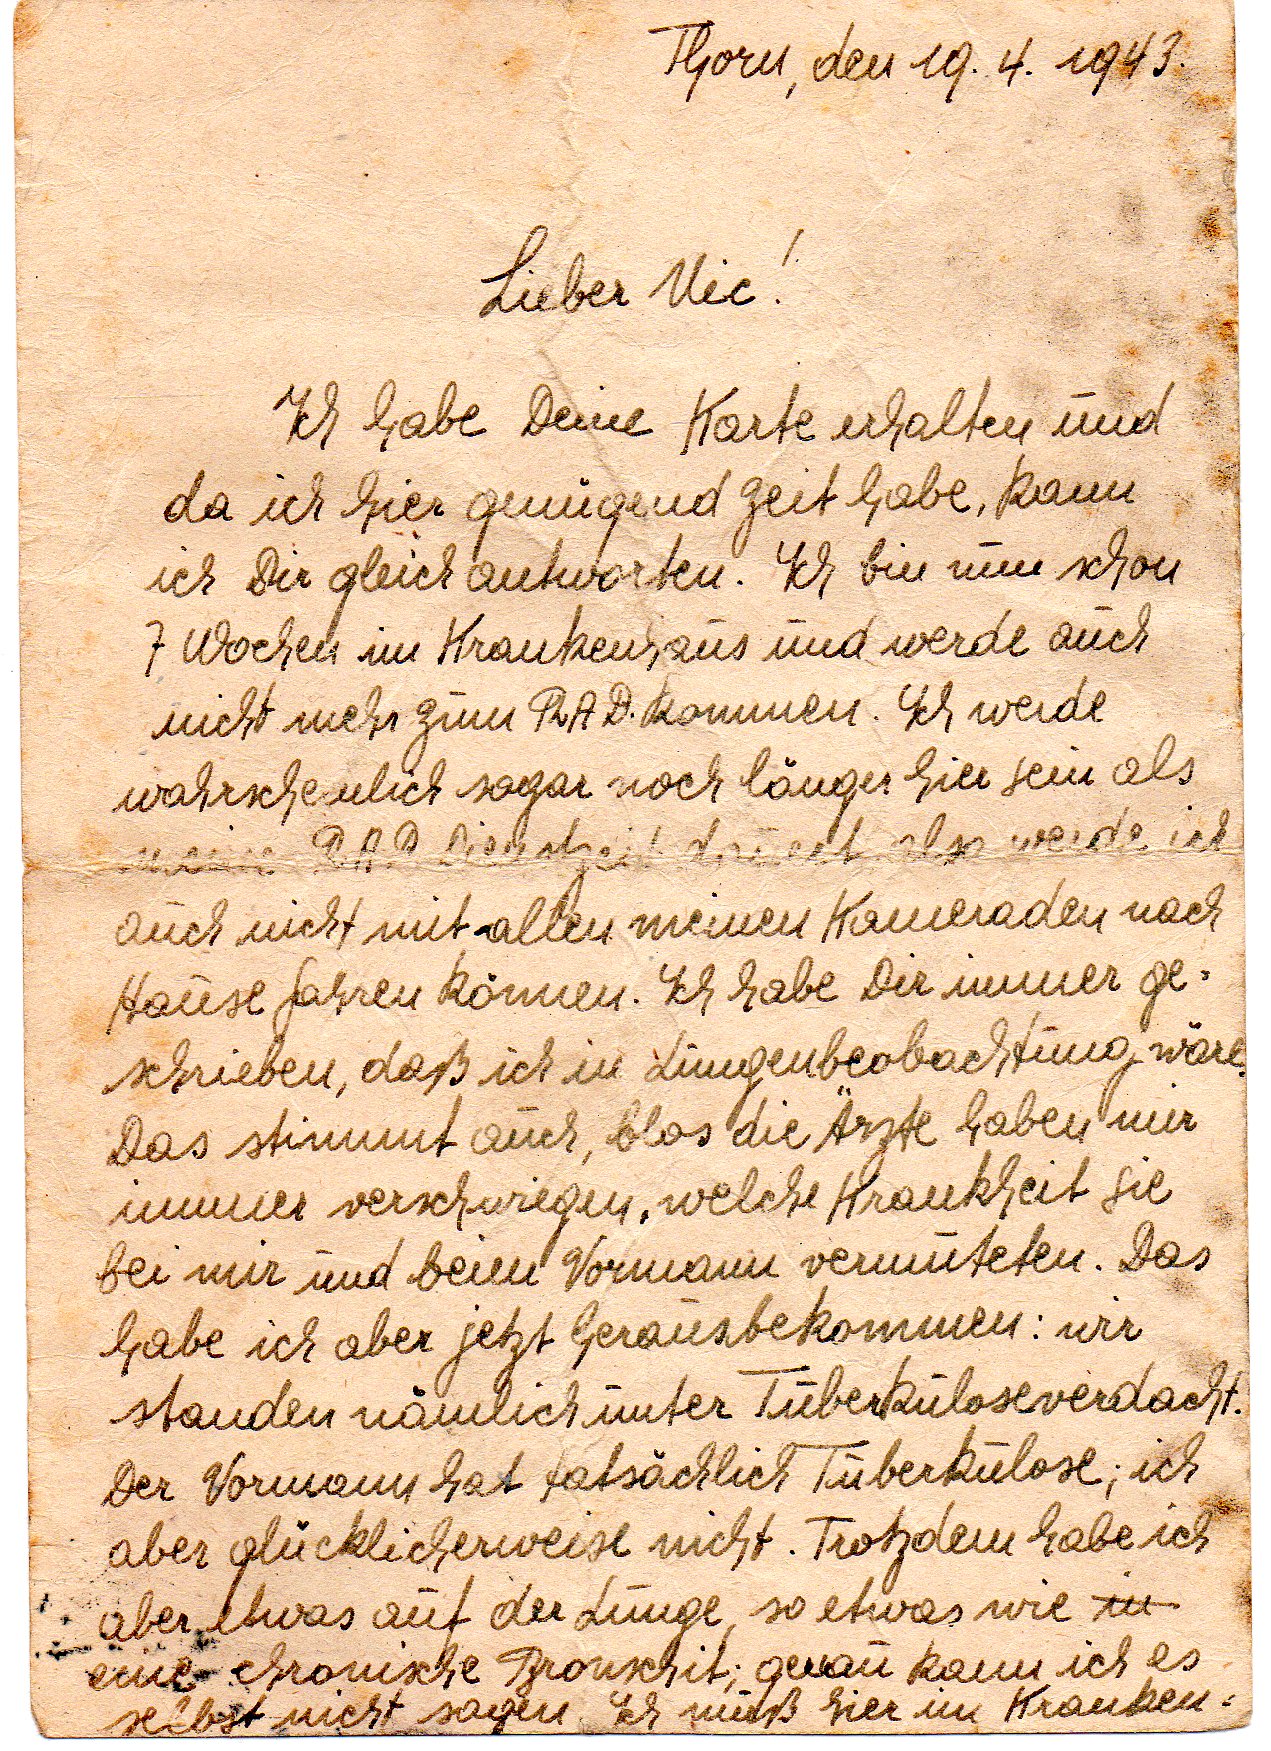 Thorn, den 19. 4. 1943.
Lieber Vic!
Ich habe Deine Karte erhalten und
da ich hier genügend Zeit habe, kann
ich Dir gleich antworten. Ich bin nun schon
7 Wochen im Krankenhaus und werde auch
nicht mehr zum RAD. kommen. Ich werde
wahrscheinlich sogar noch länger hier sein als
meine RAD Dienstzeit dauert, also werde ich
auch nicht mit allen meinen Kameraden nach
Hause fahren können. Ich habe Dir immer ge-
schrieben, daß ich in Lungenbeobachtung wäre.
Das stimmt auch, blos die Ärzte haben mir
immer verschwiegen, welche Krankheit sie
bei mir und beim Vormann vermuteten. Das
habe ich aber jetzt herausbekommen: wir
standen nämlich unter Tuberkuloseverdacht.
Der Vormann hat tatsächlich Tuberkulose; ich
aber glücklicherweise nicht. Trotzdem habe ich
aber etwas auf der Lunge, so etwas wie in
eine chronische Bronschit; genau kann ich es
selbst nicht sagen. Ich muß hier im Kranken-